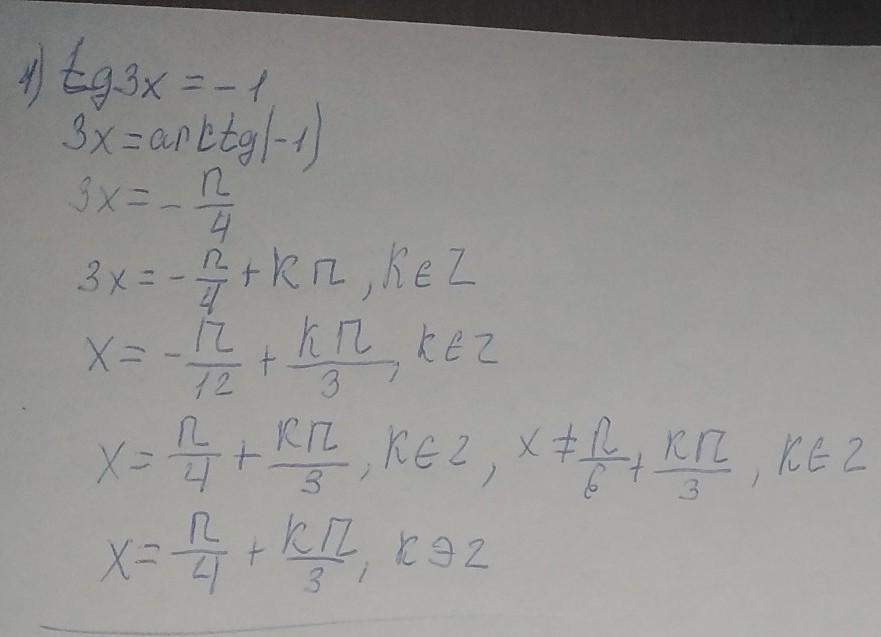 1) tg3x = -1
3x = arktg(-1)
3x = - π/4
3x = - π/4 + kπ, k ∈ Z
x = - π/12 + kπ/3, k ∈ Z
x = π/4 + kπ/3, k ∈ Z, x ≠ π/6 + kπ/3, k ∈ Z
x = π/4 + kπ/3, k ∋ Z